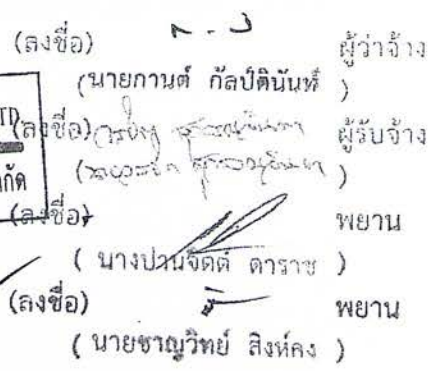 (ลงชื่อ) ผู้ว่าจ้าง
(นายกานต์ กัลป์ตินันท์ )
TD
(ลงชื่อ) ผู้รับจ้าง
กัด
( )
(ลงชื่อ) พยาน
( นางปานจิตต์ ดาราช )
(ลงชื่อ) พยาน
( นายชาญวิทย์ สิงห์คง )